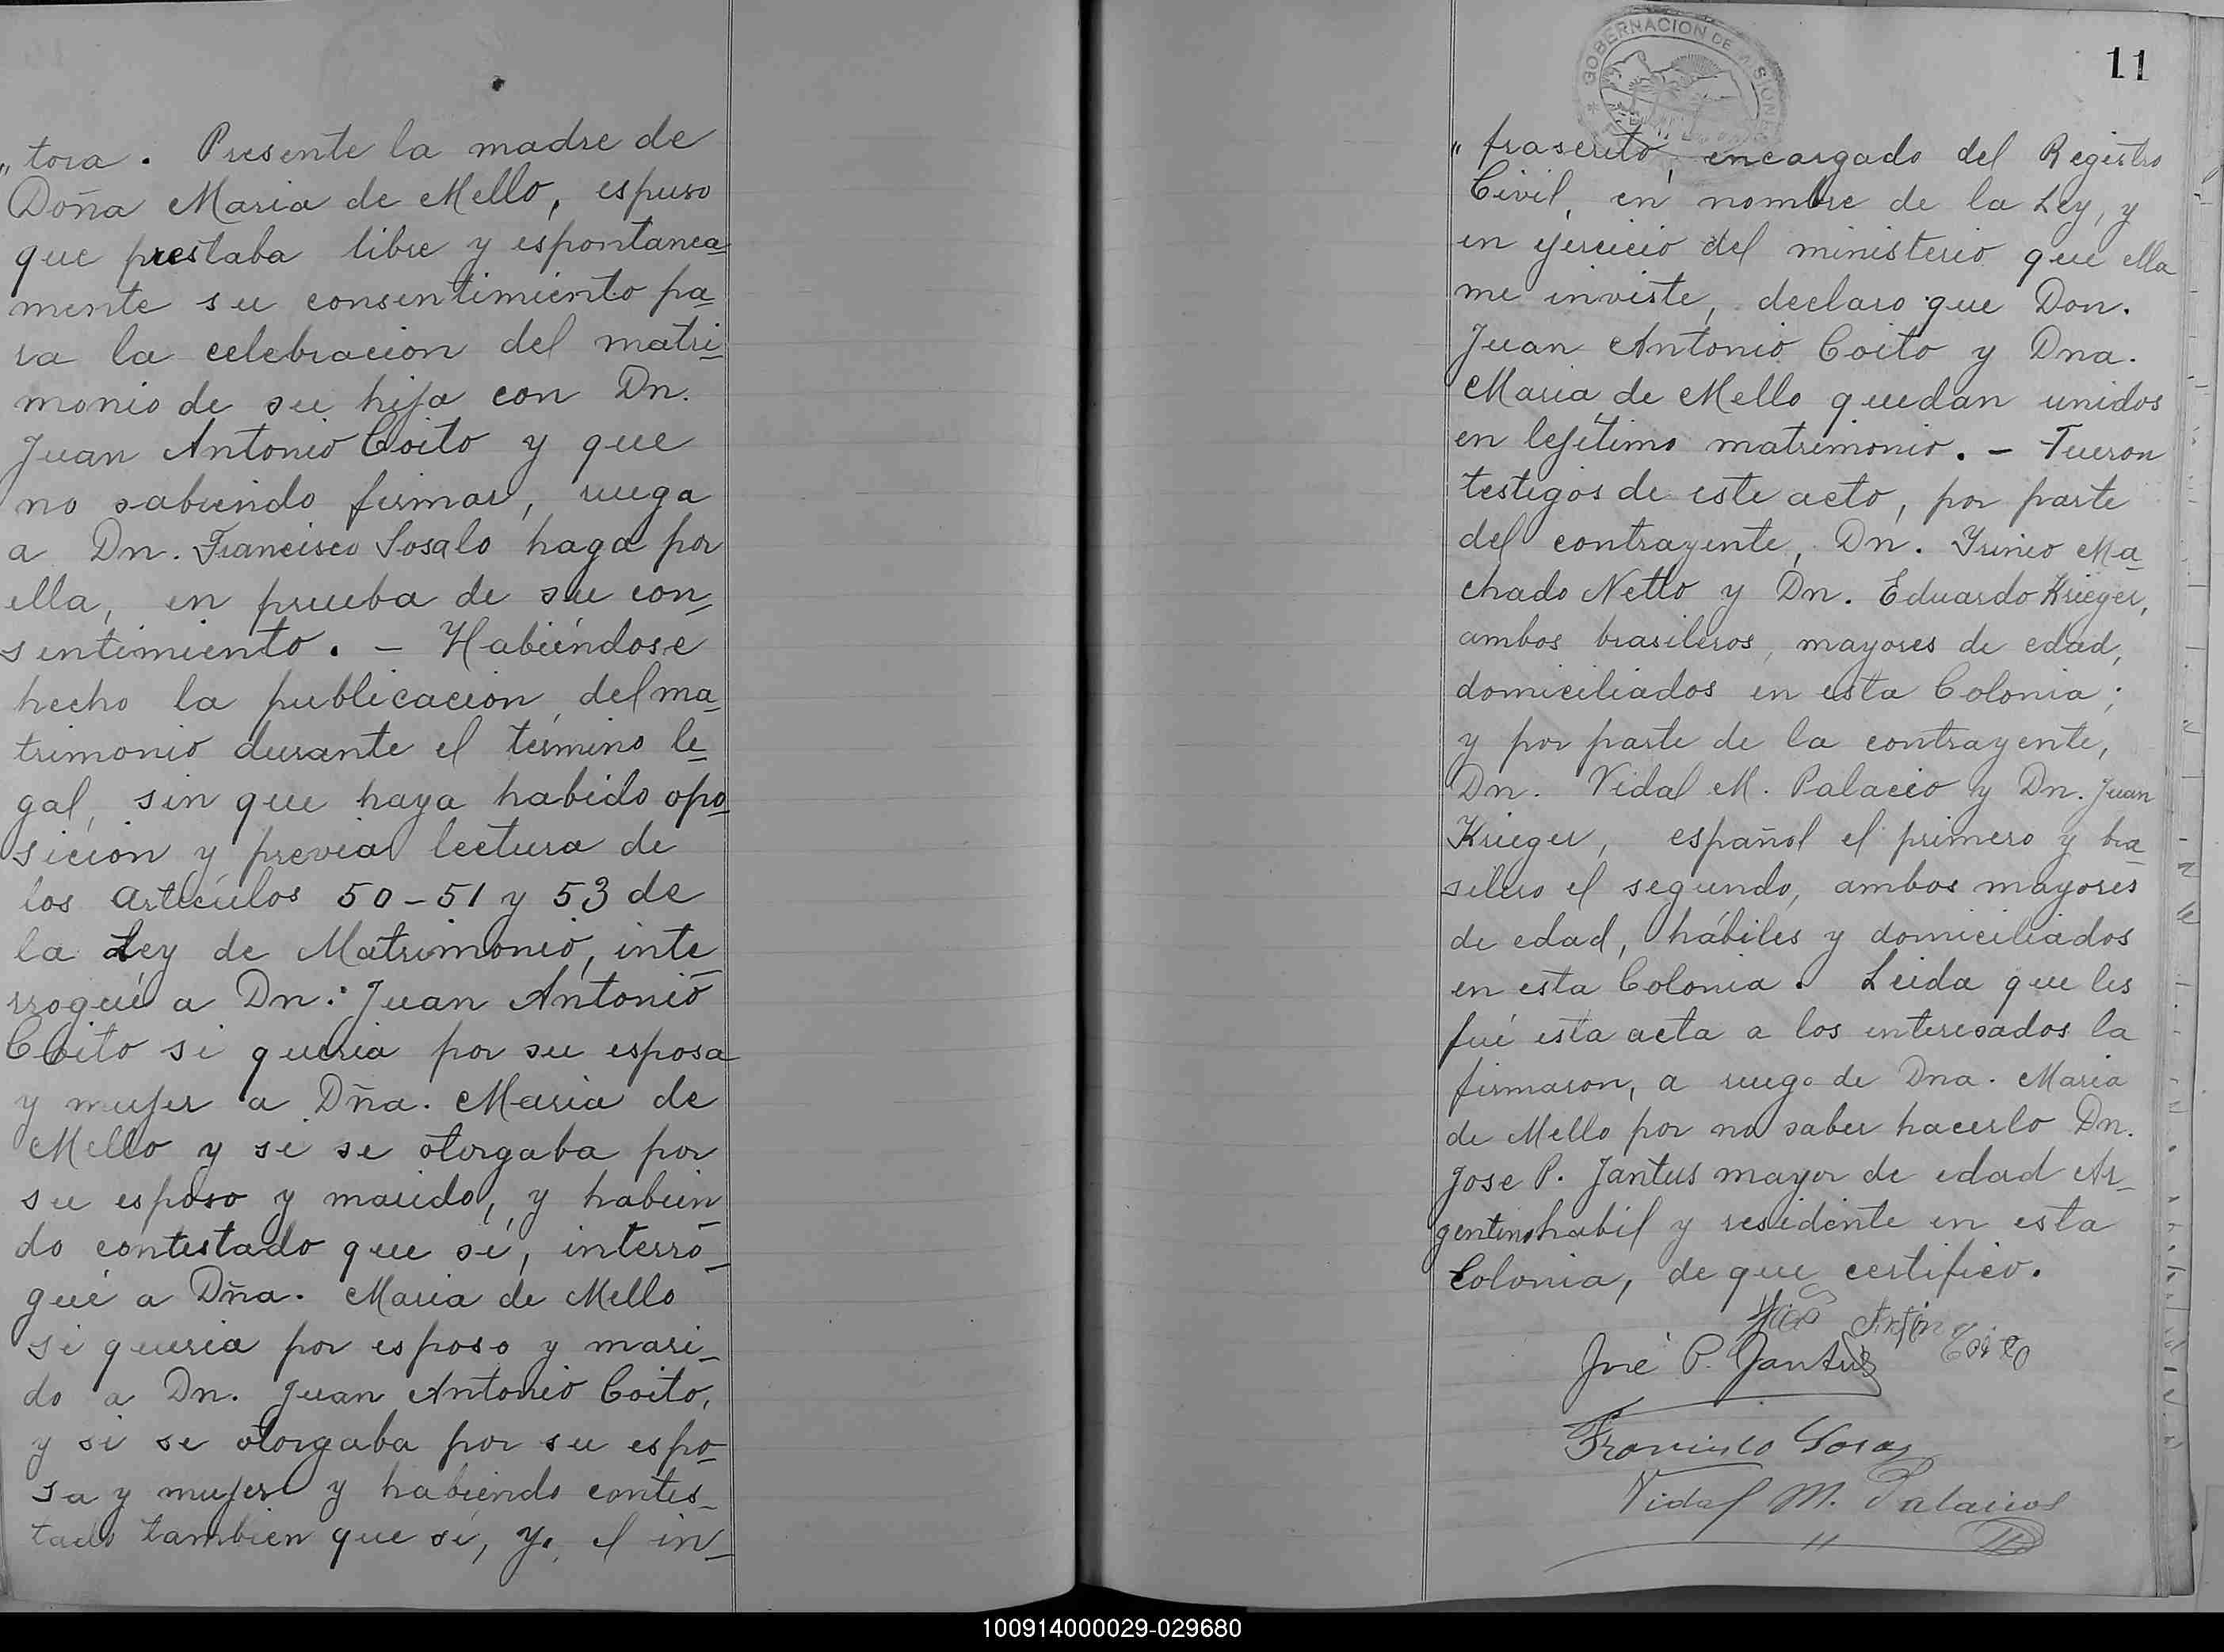 „tora. Presente la madre de
Doña Maria de Mello, espuso
que prestaba libre y espontanea-
mente su consentimiento pa-
ra la celebracion del matri-
monio de su hija con Dn.
Juan Antonio Coito y que
no sabiendo firmar, ruega
a Dn. Francisco Sosa lo haga por
ella, en prueba de su con-
sentimiento. - Habiéndose
hecho la publicacion del ma-
trimonio durante el término le-
gal, sin que haya habido opo-
sicion y previa lectura de
los artículos 50-51 y 53 de
la Ley de Matrimonio, inte-
rrogué a Dn. Juan Antonio
Coito si queria por su esposa
y mujer a Dña. Maria de
Mello y si se otorgaba por
su esposo y marido, y habien-
do contestado que sí, interro-
gué a Dña. Maria de Mello
si queria por esposo y mari-
do a Dn. Juan Antonio Coito,
y si se otorgaba por su espo-
sa y mujer y habiendo contes-
tado tambien que sí, Yo, el in-
GOBERNACION DE MISIONES
11
"frascrito, encargado del Registro
Civil, en nombre de la Ley, y
en ejercicio del ministerio que ella
me inviste, declaro que Don.
Juan Antonio Coito y Dna.
Maria de Mello quedan unidos
en lejítimo matrimonio. - Fueron
testigos de este acto, por parte
del contrayente, Dn. Irineo Ma-
chado Netto y Dn. Eduardo Krieger,
ambos brasileros, mayores de edad,
domiciliados en esta Colonia;
y por parte de la contrayente,
Dn. Vidal M. Palacio y Dn. Juan
Krieger, español el primero y bra-
silero el segundo, ambos mayores
de edad, hábiles y domiciliados
en esta Colonia. Leida que les
fué esta acta a los interesados la
firmaron, a ruego de Dna. Maria
de Mello por no saber hacerlo Dn.
Jose P. Jantus mayor de edad Ar-
gentino habil y residente en esta
Colonia, de que certifico.
Coito
José P. Jantus
Francisco Sosa
Vidal M. Palacios
100914000029-029680